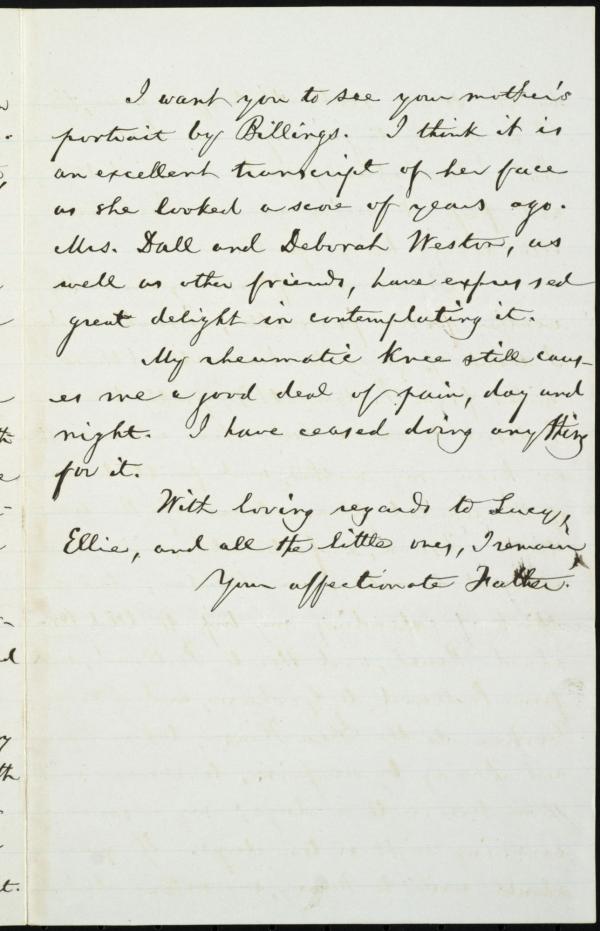 I want you to see your mother's
portrait by Billings. I think it is
an excellent transcript of her face
as she looked a score of years ago.
Mrs. Dall and Deborah Weston, as
well as other friends, have expressed
great delight in contemplating it.
My rheumatic knee still caus-
es me a good deal of pain, day and
night. I have ceased doing anything
for it.
With loving regards to Lucy,
Ellie, and all the little ones, I remain,
Your affectionate Father.